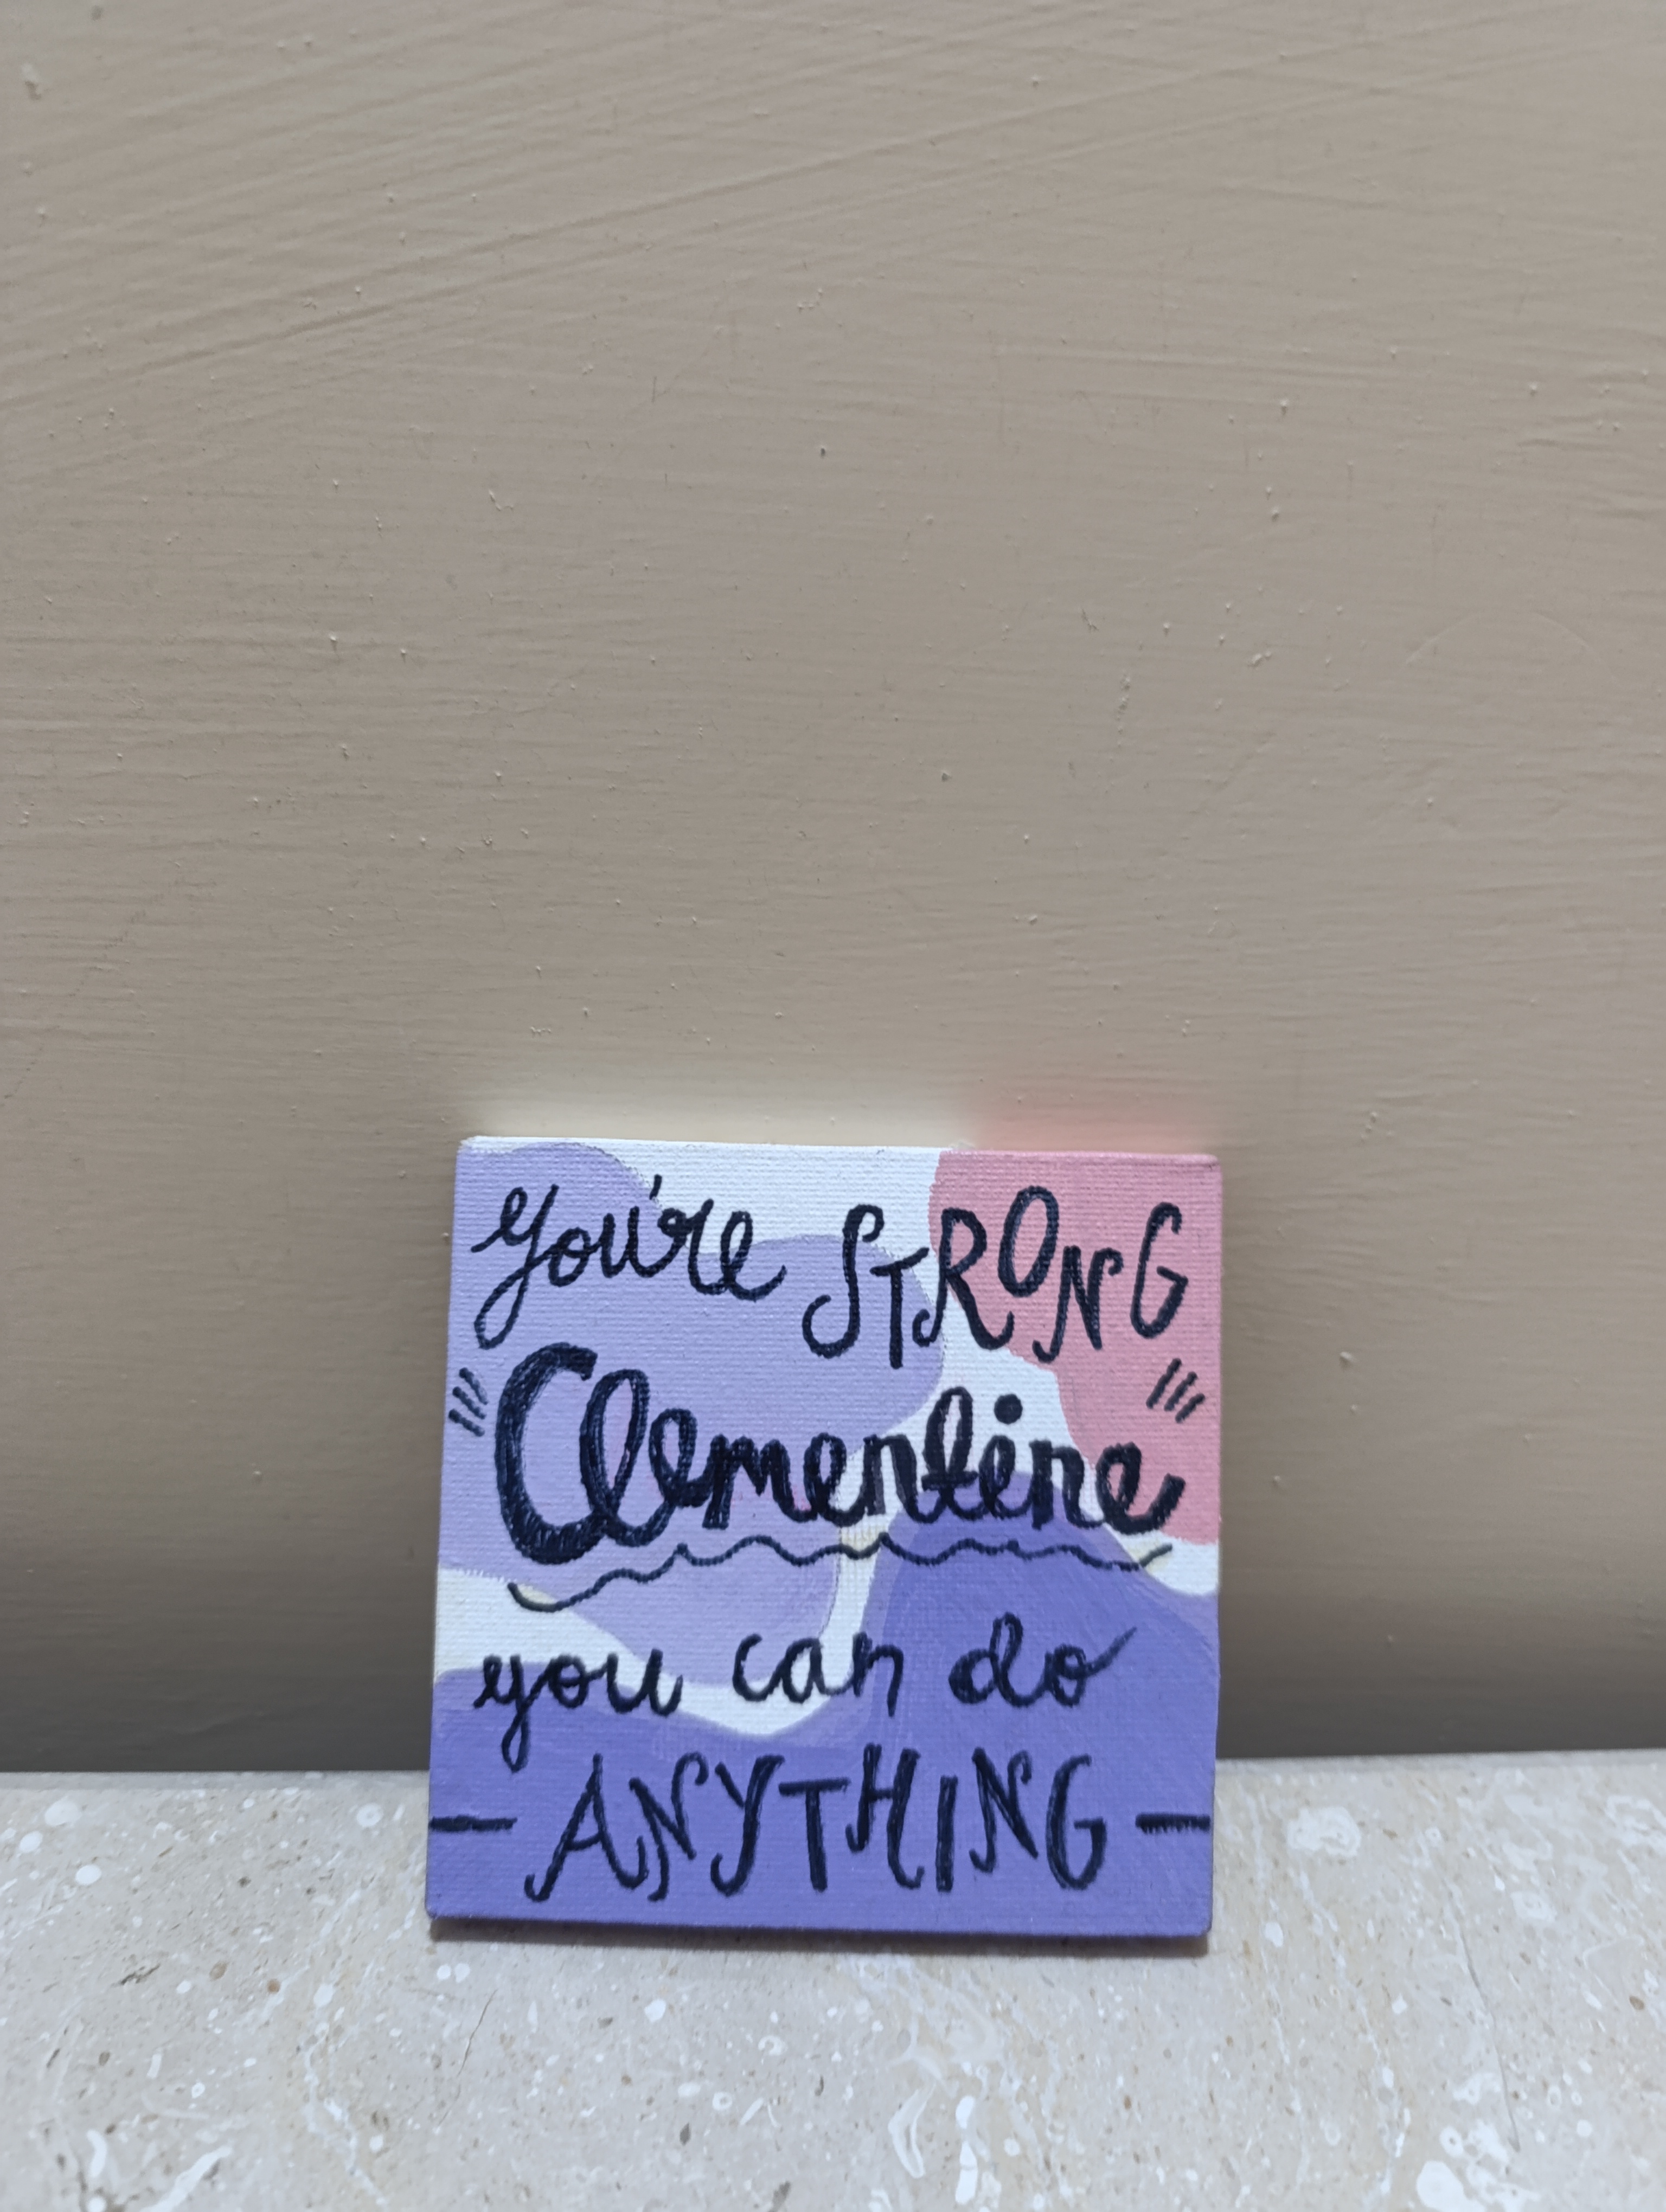 you're STRONG
Clementine
you can do
- ANYTHING -